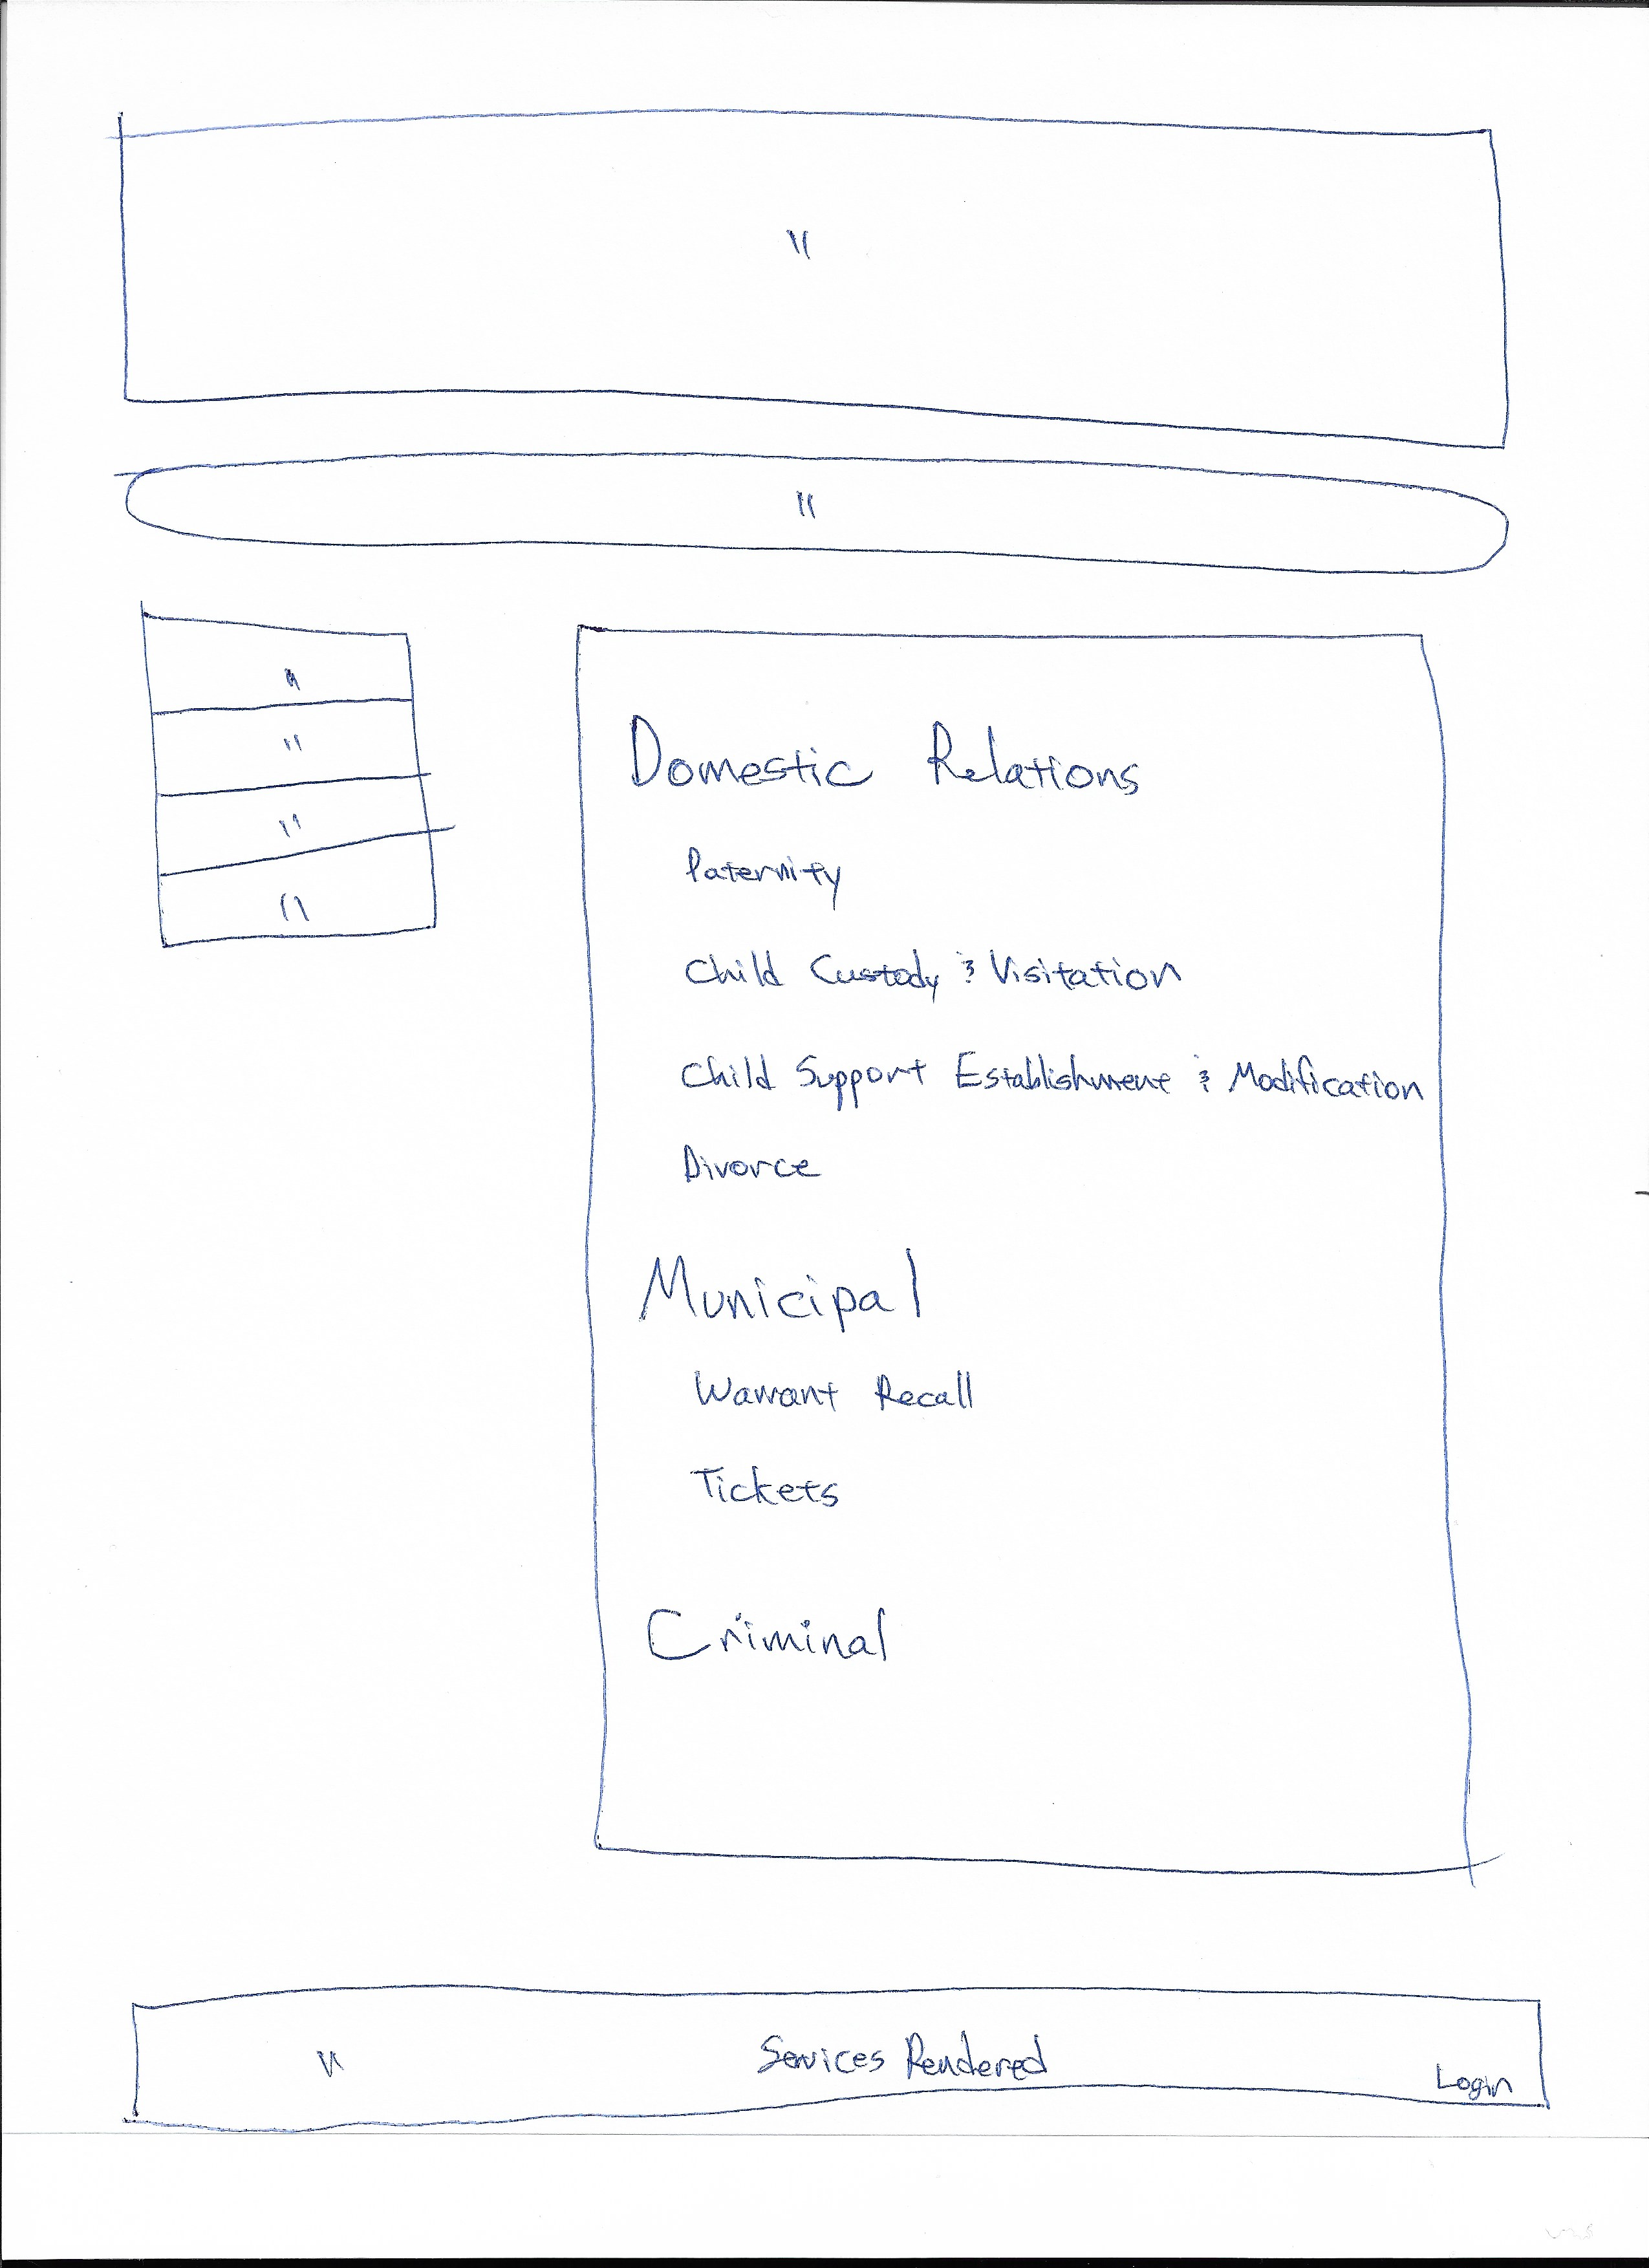 "
"
"
"
"
"
Domestic Relations
Paternity
Child Custody & Visitation
Child Support Establishment & Modification
Divorce
Municipal
Warrant Recall
Tickets
Criminal
" Services Rendered Login